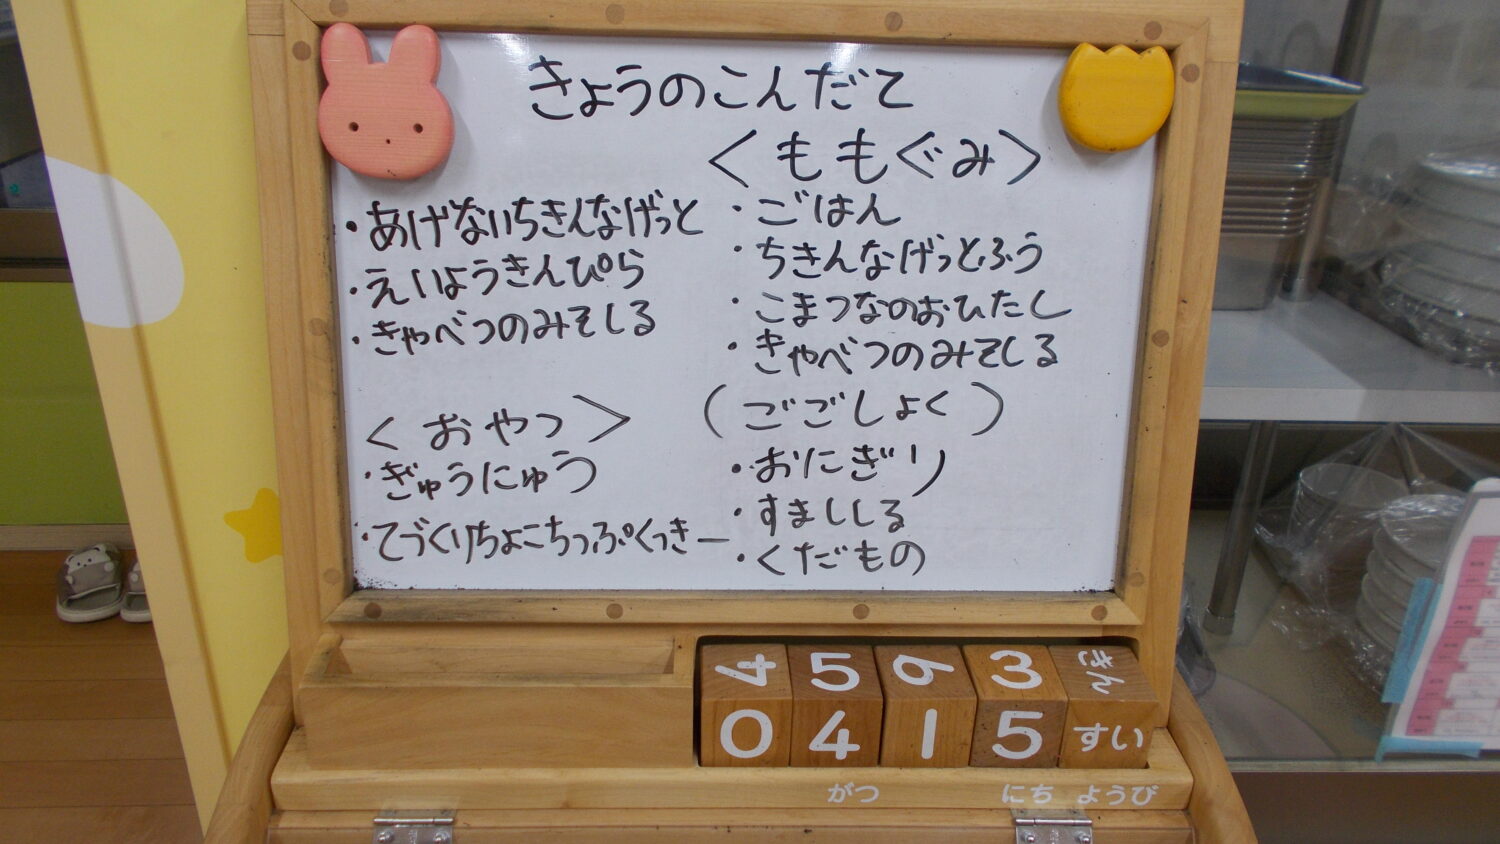 きょうのこんだて
・あげないちきんなげっと
・えいようきんぴら
・きゃべつのみそしる
<おやつ>
・ぎゅうにゅう
・てづくりちょこちっぷくっきー
<ももぐみ>
・ごはん
・ちきんなげっとふう
・こまつなのおひたし
・きゃべつのみそしる
(ごごしょく)
・おにぎり
・すまししる
・くだもの
4 5 9 3 きん
0 4 1 5 すい
がつ にち ようび